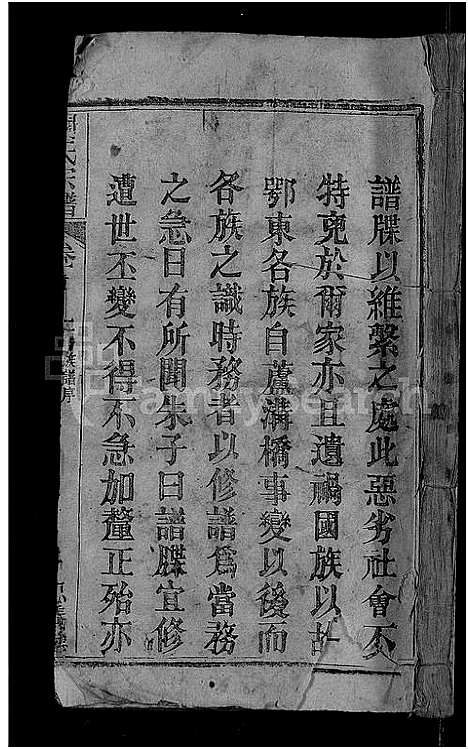 譜牒以維繫之處此惡劣社會不
特兇於爾家亦且遺禍國族以故
鄂東各族自蘆溝橋事變以後而
各族之識時務者以修譜爲當務
之急日有所聞朱子曰譜牒宜修
遭世丕變不得不急加釐正殆亦
氏宗譜
FamilySearch